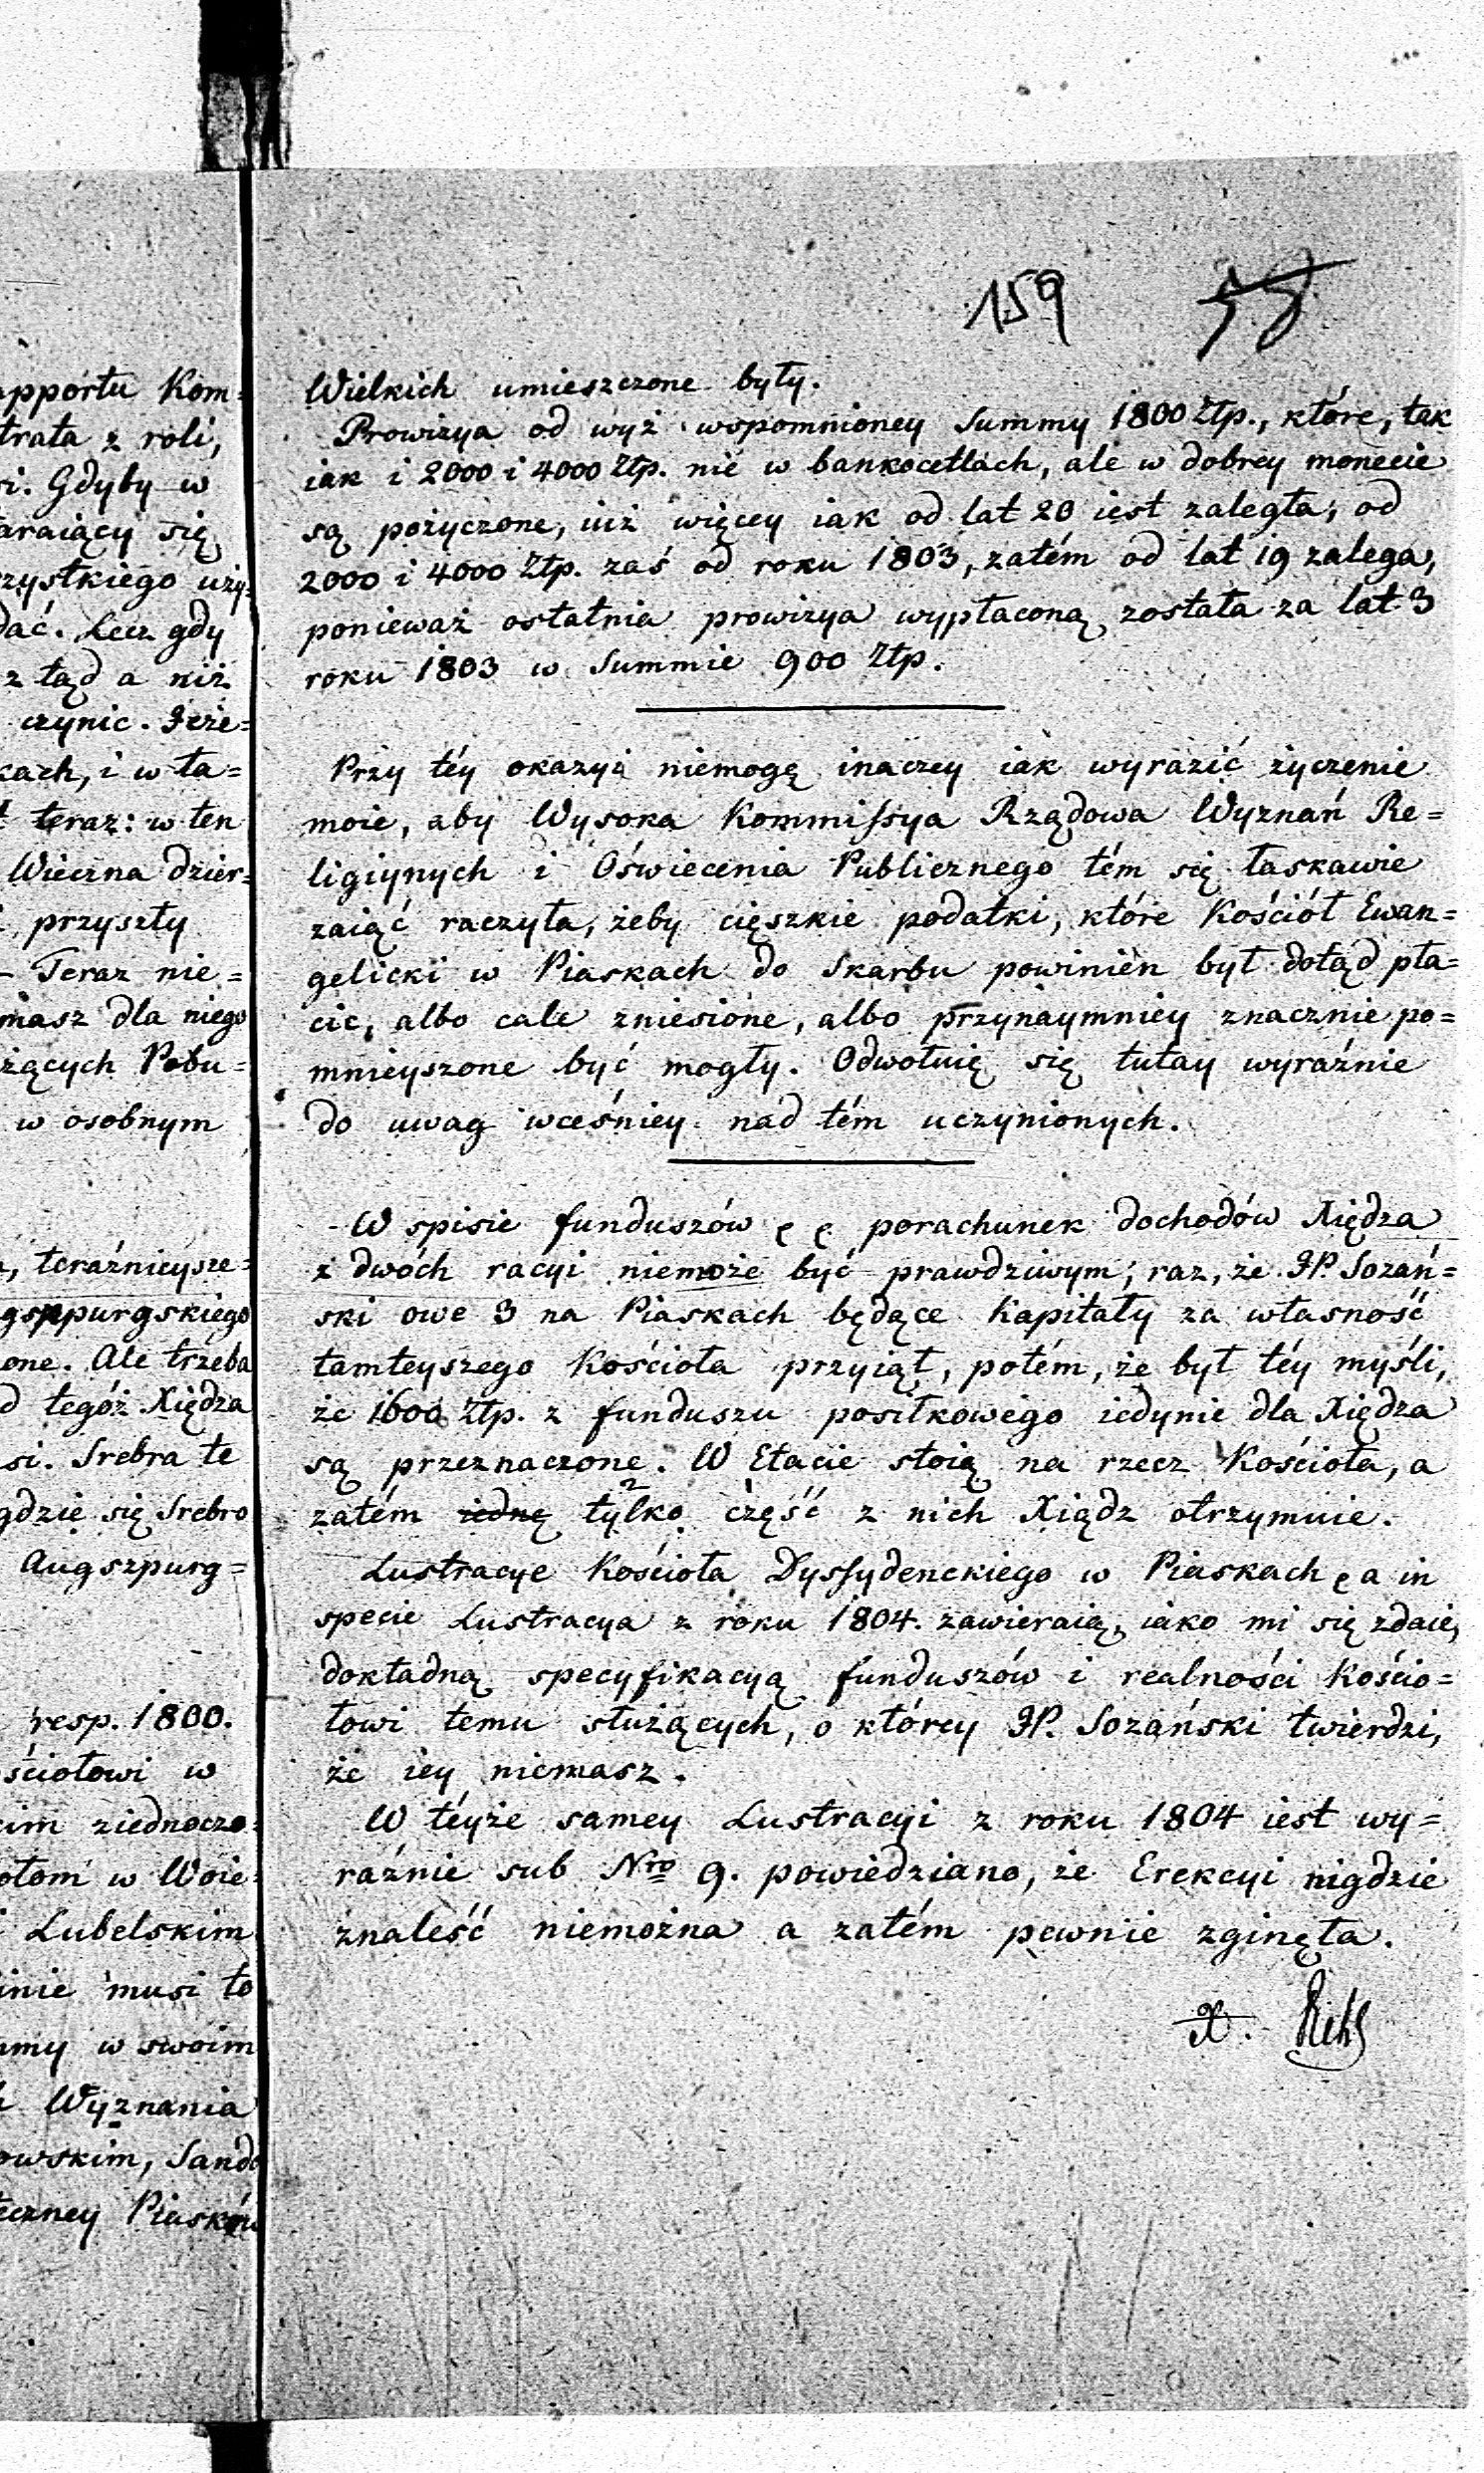 159 58
Wielkich umieszczone były.
Prowizya od wyż wspomnioney Summy 1800 Złp., które, tak
iak i 2000 i 4000 Złp. nie w bankocetlach, ale w dobrey monecie
są pożyczone, iuż więcey iak od lat 20 iest zaległa; od
2000 i 4000 Złp. zaś od roku 1803, zatém od lat 19 zalega,
ponieważ ostatnia prowizya wypłaconą została za lat 3
roku 1803 w Summie 900 Złp.
Przy téy okazyi niemogę inaczey iak wyrazić życzenie
moie, aby Wysoka Kommissya Rządowa Wyznań Re=
ligiynych i Oświecenia Publicznego tém się łaskawie
zaiąć raczyła, żeby cięszkie podatki, które Kościół Ewan=
gelicki w Piaskach do Skarbu powinien był dotąd pła=
cic, albo cale zniesione, albo przynaymniey znacznie po=
mnieyszone być mogły. Odwołuię się tutay wyraźnie
do uwag wcześniey nad tém uczynionych.
W spisie funduszów porachunek dochodów Xiędza
z dwóch racyi niemoże być prawdziwym; raz, że JP. Sozań=
ski owe 3 na Piaskach będące Kapitały za własność
tamteyszego Kościoła przyiął, potém, że był téy myśli,
że 1600 Złp. z funduszu posiłkowego iedynie dla Xiędza
są przeznaczone. W Etacie stoią na rzecz Kościoła, a
zatém iednę tylko część z nich Xiądz otrzymuie.
Lustracye Kościoła Dyssydenckiego w Piaskach a in
specie Lustracya z roku 1804. zawieraią, iako mi się zdaie,
dokładną specyfikacyą funduszów i realności Kościo=
łowi temu służących, o którey JP. Sozański twierdzi,
że iey niemasz.
W téyże samey Lustracyi z roku 1804 iest wy=
raźnie sub Nro 9. powiedziano, że Erekcyi nigdzie
znaleść niemożna a zatém pewnie zginęła.
X.
apportu Kom=
trata z roli,
si. Gdyby w
araiący się
zystkiego uży=
dać. Lecz gdy
z tąd a niż
czynic. Jeże=
kach, i w ta=
teraz: w ten
Wieczna dzier=
przyszły
- Teraz nie=
masz dla niego
żących Pobu=
w osobnym
teraźnieysze=
gszpurgskiego
one. Ale trzeba
d tegóż Xiędza
si. Srebra te
gdzie się Srebro
Augszpurg=
resp. 1800.
ściołowi w
cim ziednoczo=
ołom w Woie=
i Lubelskim
inie musi to
my w swoim
Wyznania
owskim, Sando
eczney Piasków